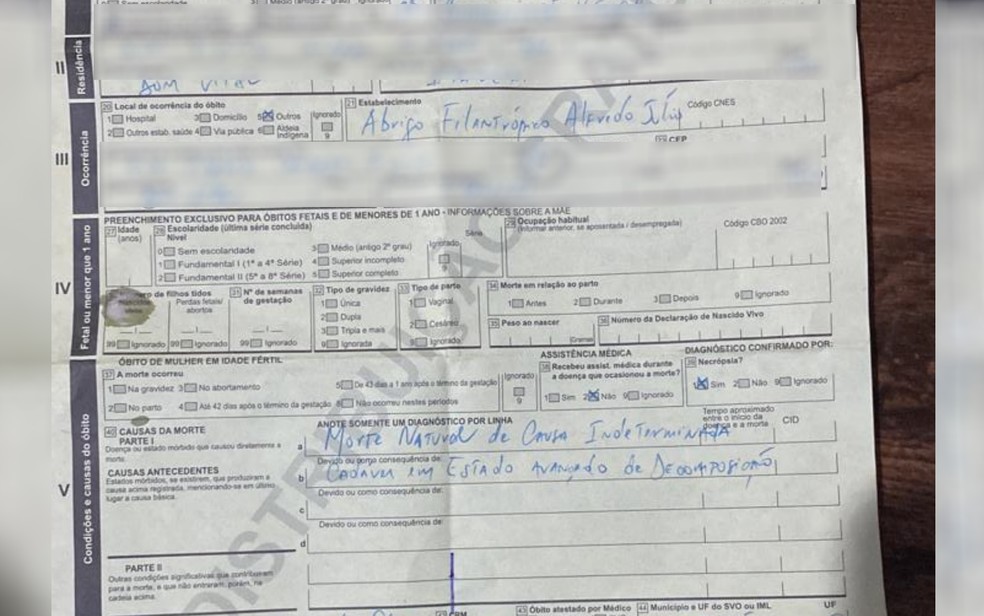 II
Residência
20 Local de ocorrência do óbito
1 Hospital 3 Domicílio 5 Outros Ignorado
2 Outros estab. saúde 4 Via pública 6 Aldeia Indígena 9
21 Estabelecimento Código CNES
Abrigo Filantrópico Alfredo
CEP
III
Ocorrência
PREENCHIMENTO EXCLUSIVO PARA ÓBITOS FETAIS E DE MENORES DE 1 ANO - INFORMAÇÕES SOBRE A MÃE
27 Idade (anos)
28 Escolaridade (última série concluída)
Nível Série
0 Sem escolaridade 3 Médio (antigo 2º grau) Ignorado
1 Fundamental I (1ª a 4ª Série) 4 Superior incompleto
2 Fundamental II (5ª a 8ª Série) 5 Superior completo
29 Ocupação habitual
(informar anterior, se aposentada / desempregada) Código CBO 2002
IV
Fetal ou menor que 1 ano
de filhos tidos
Perdas fetais/ abortos
99 Ignorado 99 Ignorado
31 Nº de semanas de gestação
99 Ignorado
32 Tipo de gravidez
1 Única
2 Dupla
3 Tripla e mais
9 Ignorada
33 Tipo de parto
1 Vaginal
2 Cesáreo
9 Ignorado
34 Morte em relação ao parto
1 Antes 2 Durante 3 Depois 9 Ignorado
35 Peso ao nascer
Gramas
36 Número da Declaração de Nascido Vivo
ÓBITO DE MULHER EM IDADE FÉRTIL
37 A morte ocorreu
1 Na gravidez 3 No abortamento 5 De 43 dias a 1 ano após o término da gestação Ignorado
2 No parto 4 Até 42 dias após o término da gestação 8 Não ocorreu nestes períodos 9
ASSISTÊNCIA MÉDICA
38 Recebeu assist. médica durante
a doença que ocasionou a morte?
1 Sim 2 Não 9 Ignorado
DIAGNÓSTICO CONFIRMADO POR:
39 Necrópsia?
1 Sim 2 Não 9 Ignorado
V
Condições e causas do óbito
40 CAUSAS DA MORTE ANOTE SOMENTE UM DIAGNÓSTICO POR LINHA
Tempo aproximado entre o início da doença e a morte CID
PARTE I
Doença ou estado mórbido que causou diretamente a morte.
a Morte Natural de Causa Indeterminada
Devido ou como consequência de:
CAUSAS ANTECEDENTES
Estados mórbidos, se existirem, que produziram a
causa acima registrada, mencionando-se em último
lugar a causa básica.
b Cadáver em Estado Avançado de Decomposição
Devido ou como consequência de:
c
Devido ou como consequência de:
d
PARTE II
Outras condições significativas que contribuíram
para a morte, e que não entraram, porém, na
cadeia acima.
CRM
43 Óbito atestado por Médico
44 Município e UF do SVO ou IML UF